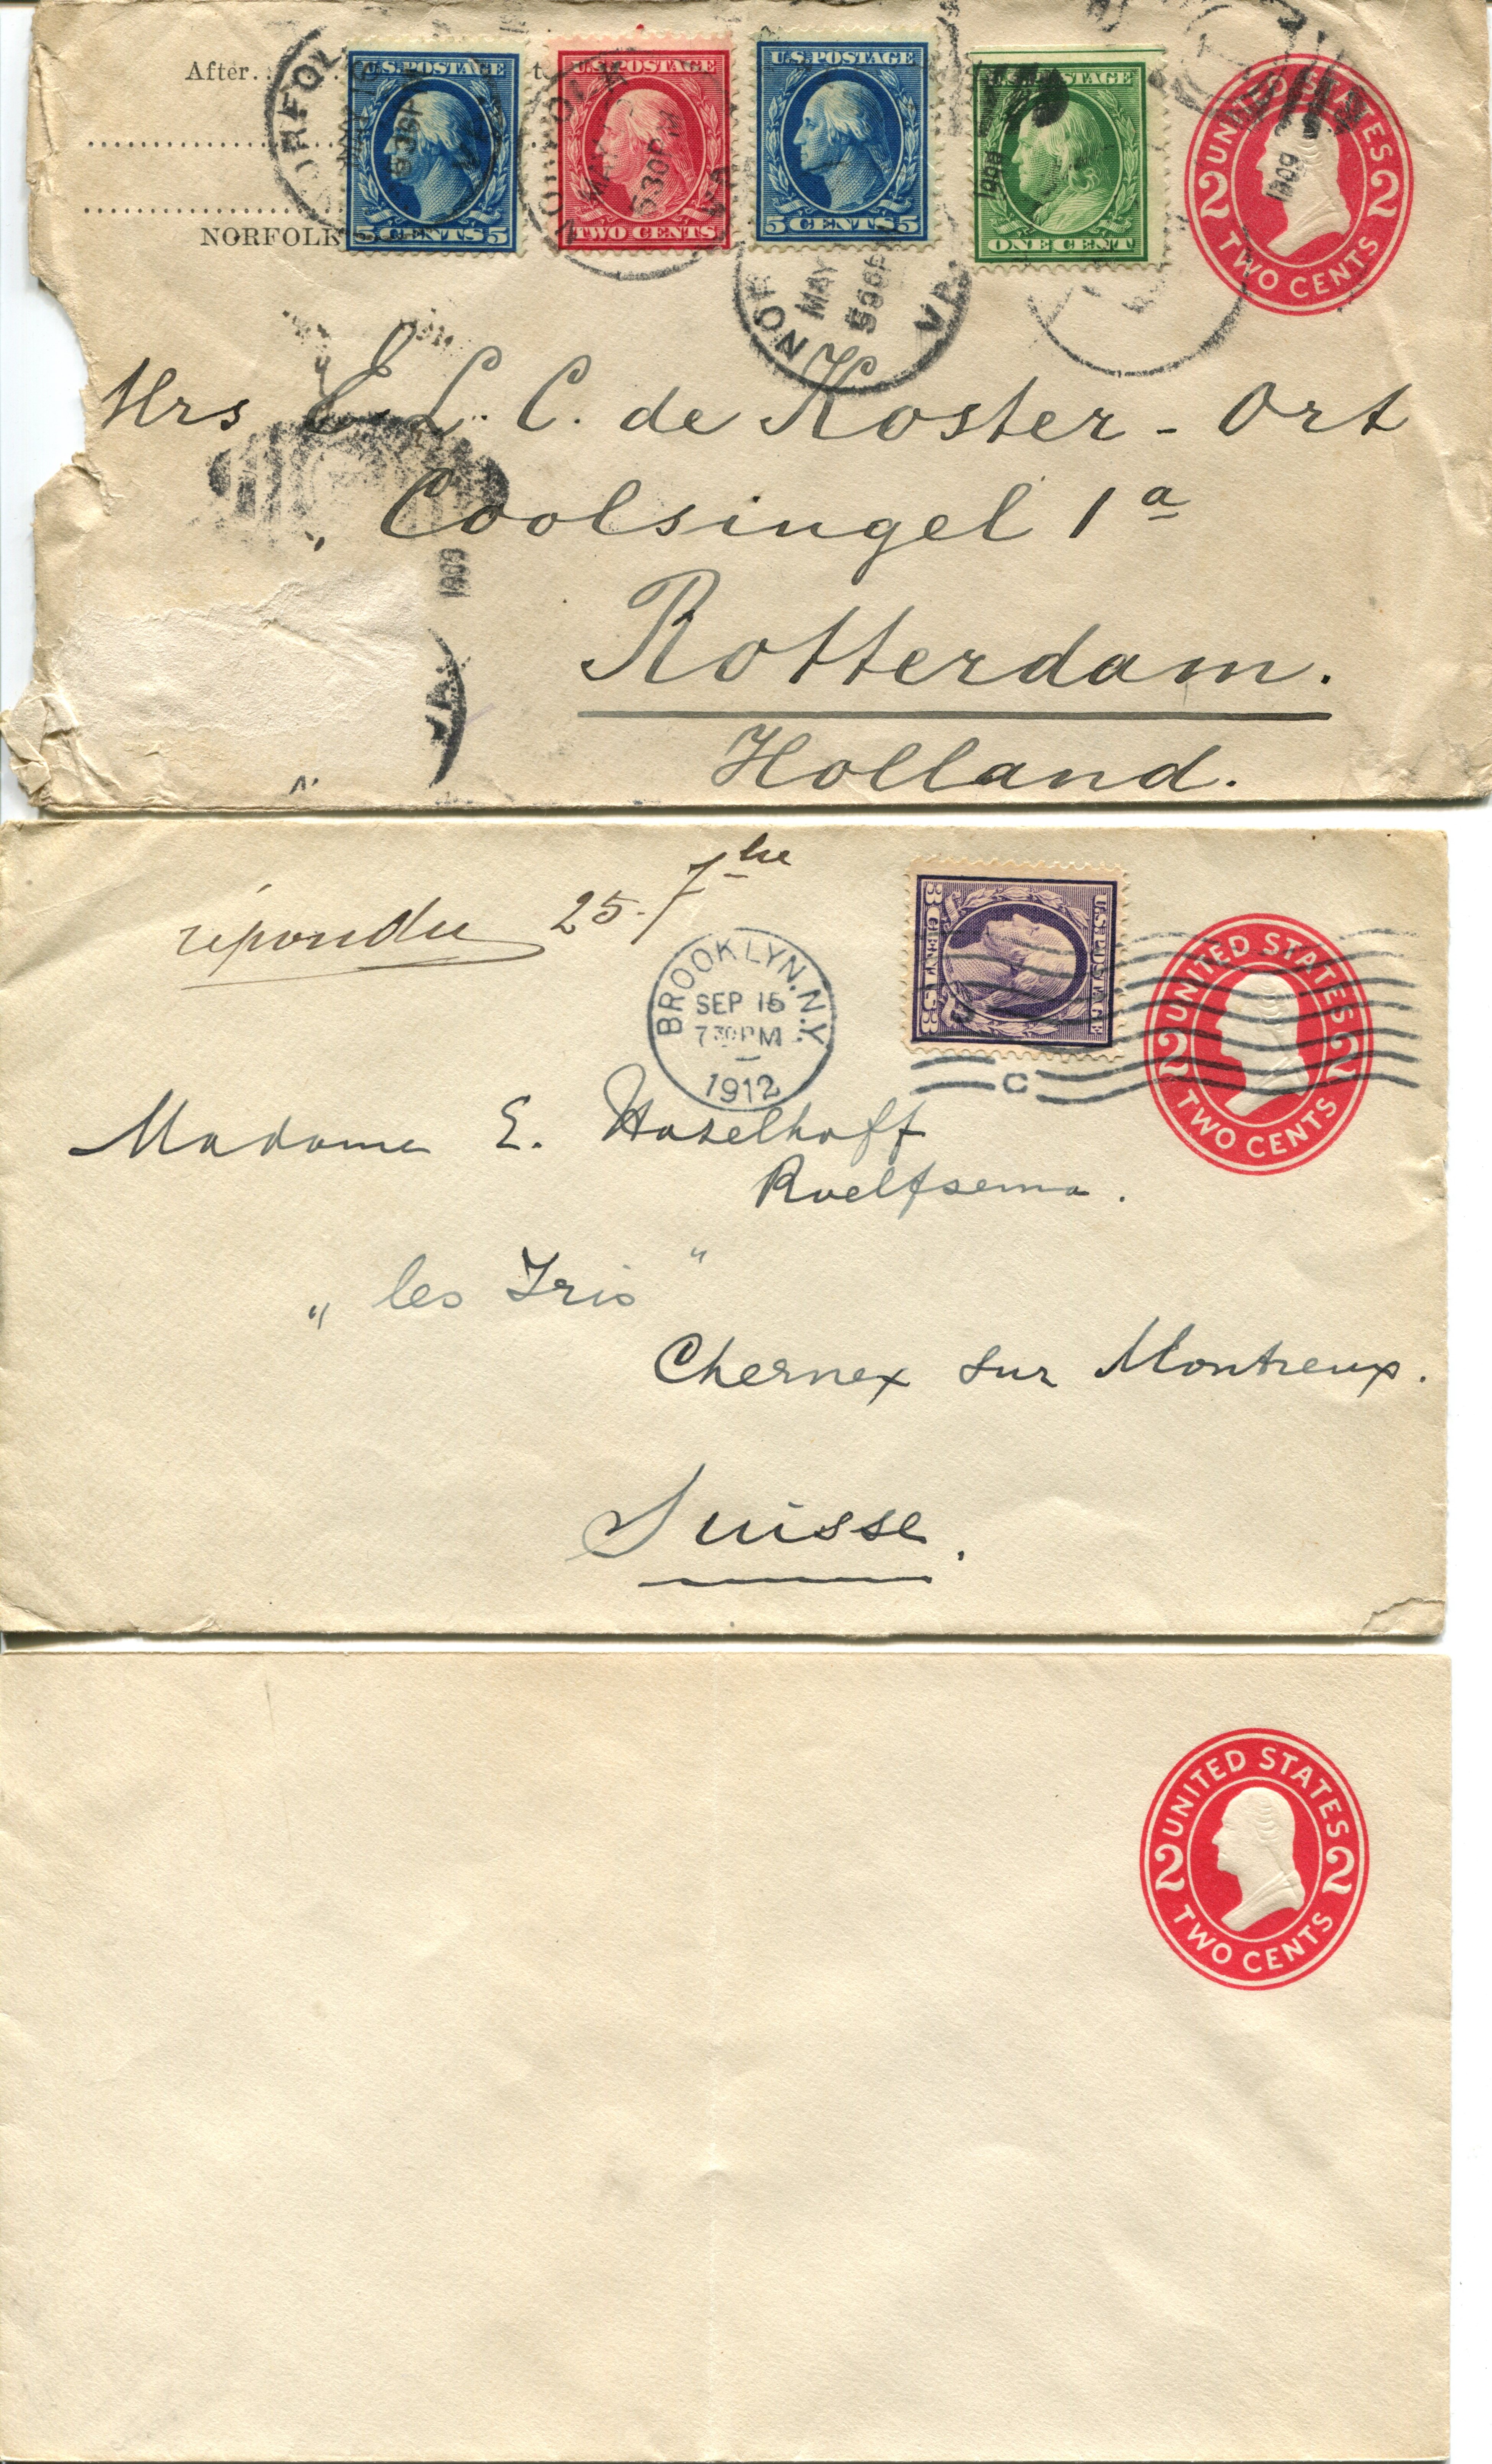 After..
NORFOLK
NORFOLK
U.S. POSTAGE
5 CENTS 5
MAY
530PM
U.S. POSTAGE
TWO CENTS
U.S. POSTAGE
5 CENTS 5
NOR
MAY
530PM
VA.
U.S. POSTAGE
ONE CENT
1909
UNITED STATES
2 2
TWO CENTS
1909
Mrs E. L. C. de Koster - Ort
Coolsingel 1a
Rotterdam.
Holland.
1909
VA.
répondu 25 7bre
BROOKLYN, N.Y.
SEP 15
730PM
1912
U.S. POSTAGE
3 CENTS 3
C
UNITED STATES
2 2
TWO CENTS
Madame E. Hazelhoff
Roelfsema.
„ les Iris "
Chernex sur Montreux.
Suisse.
UNITED STATES
2 2
TWO CENTS